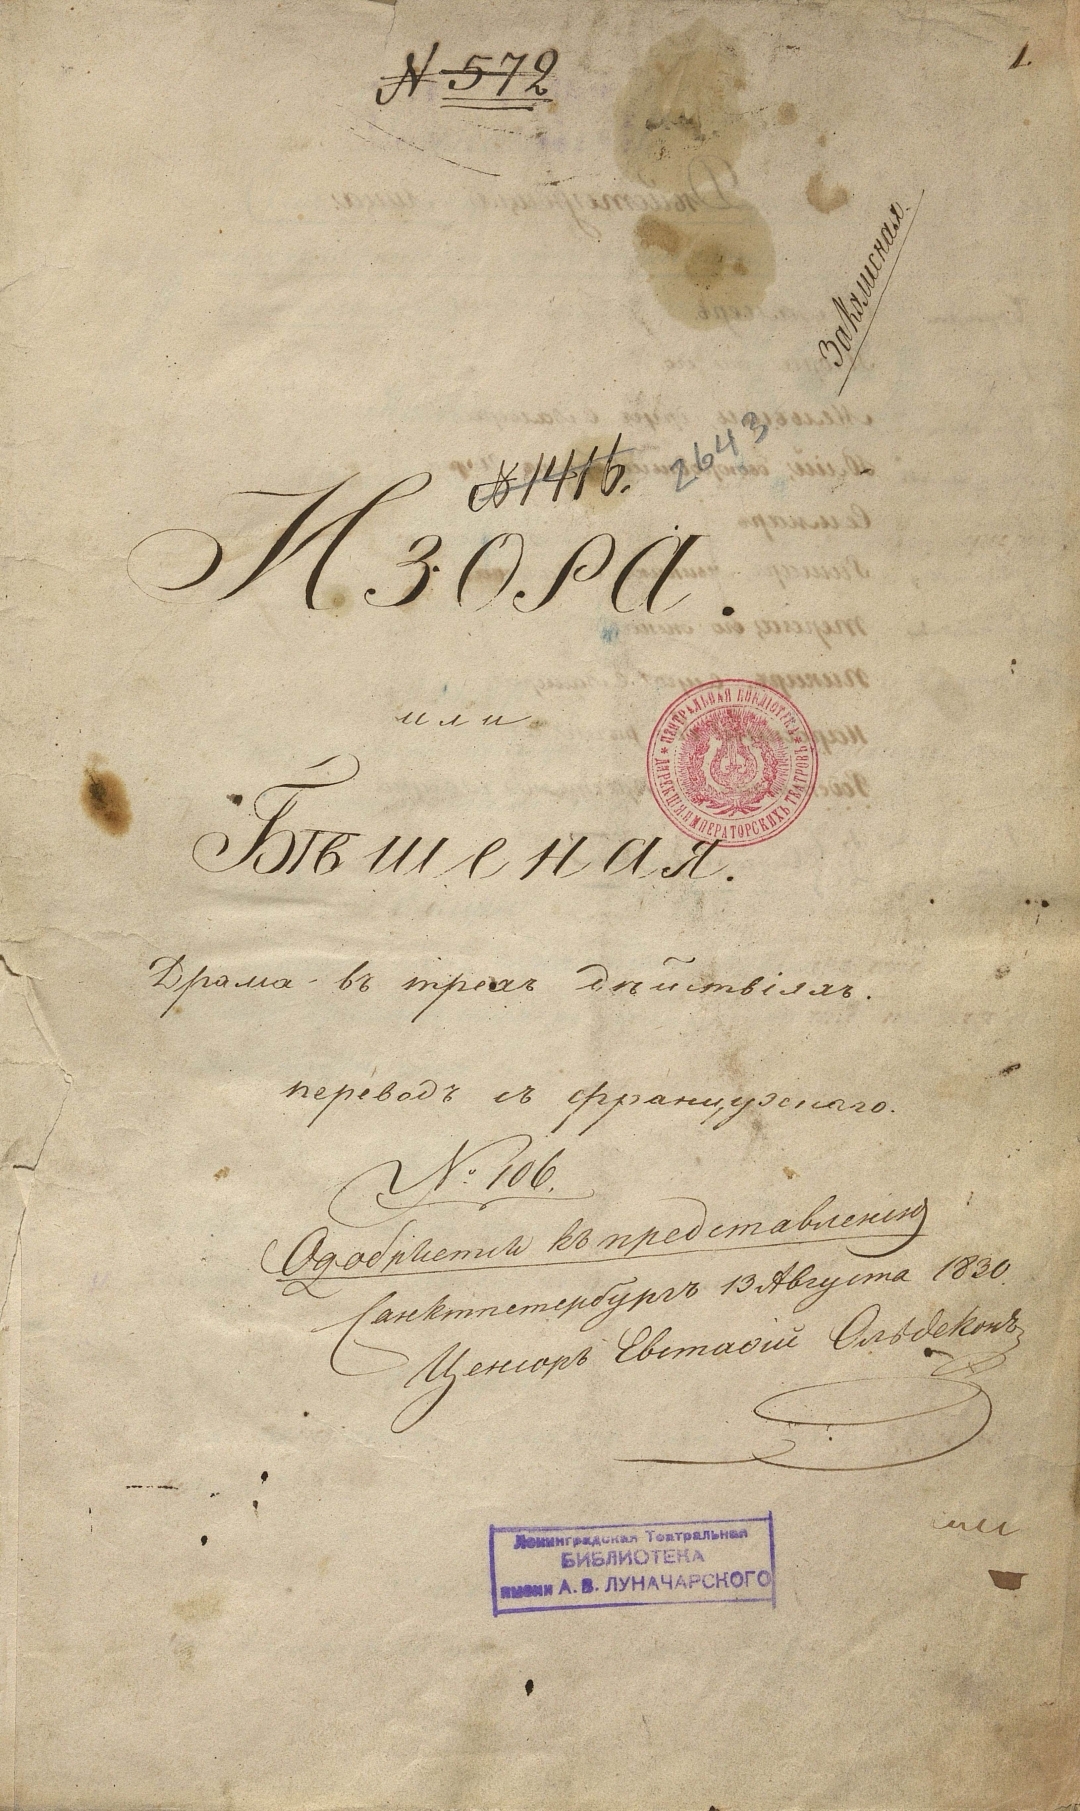 N 572
1.
N 1416.
2643
Изора.
или
Бѣшеная.
ЦЕНТРАЛЬНАЯ БИБЛІОТЕКА
ДИРЕКЦІИ ИМПЕРАТОРСКИХЪ ТЕАТРОВЪ
Драма въ трехъ дѣйствіяхъ.
переводъ съ французскаго.
№ 106.
Одобряется къ представленію
Санктпетербургъ 13 Августа 1830
Ценсоръ Евстафій Ольдекопъ
Ленинградская Театральная
БИБЛИОТЕКА
имени А. В. ЛУНАЧАРСКОГО